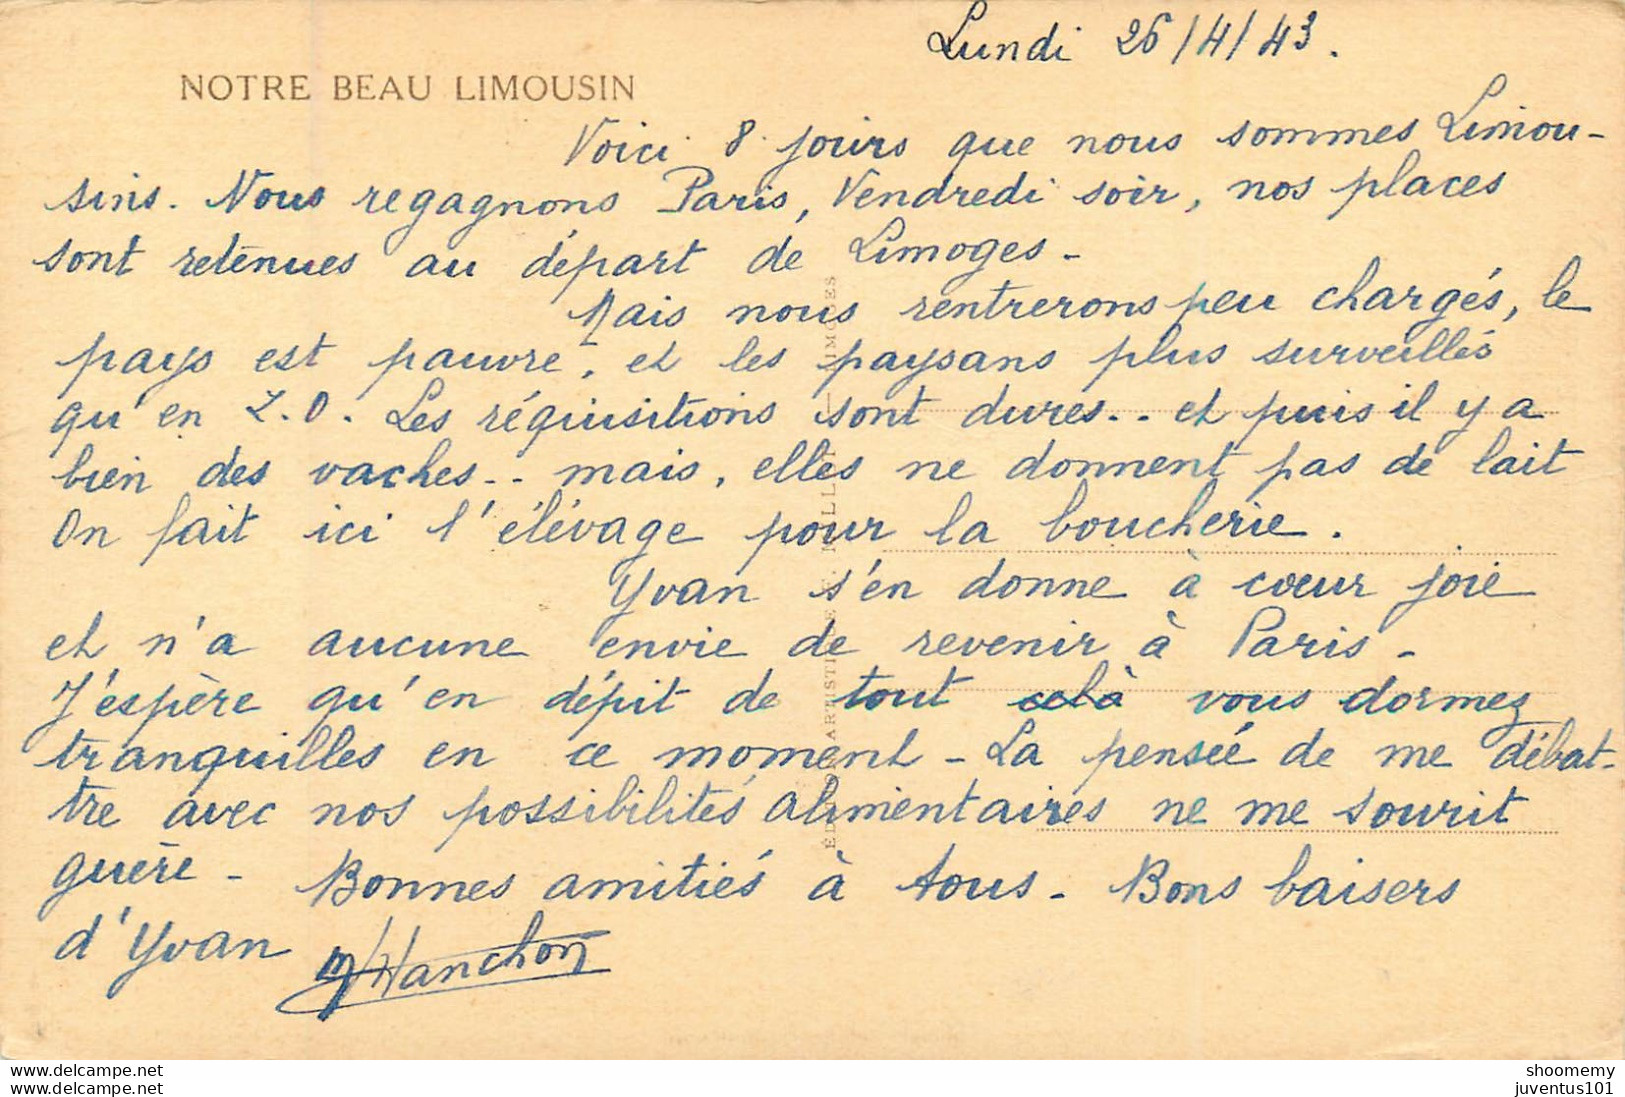 Lundi 26/4/43.
NOTRE BEAU LIMOUSIN
Voici 8 jours que nous sommes Limou-
sins. Nous regagnons Paris, Vendredi soir, nos places
sont retenues au départ de Limoges -
Mais nous rentrerons peu chargés, le
pays est pauvre, et les paysans plus surveillés
qu'en Z.O. Les réquisitions sont dures.. et puis il y a
bien des vaches.. mais, elles ne donnent pas de lait
On fait ici l'élevage pour la boucherie.
Yvan s'en donne à cœur joie
et n'a aucune envie de revenir à Paris -
J'espère qu'en dépit de tout celà vous dormez
tranquilles en ce moment - La pensée de me débat-
tre avec nos possibilités alimentaires ne me sourit
guère - Bonnes amitiés à tous - Bons baisers
d'Yvan
Hanchon
my beautiful world
my beautiful world
shoomemy
juventus101